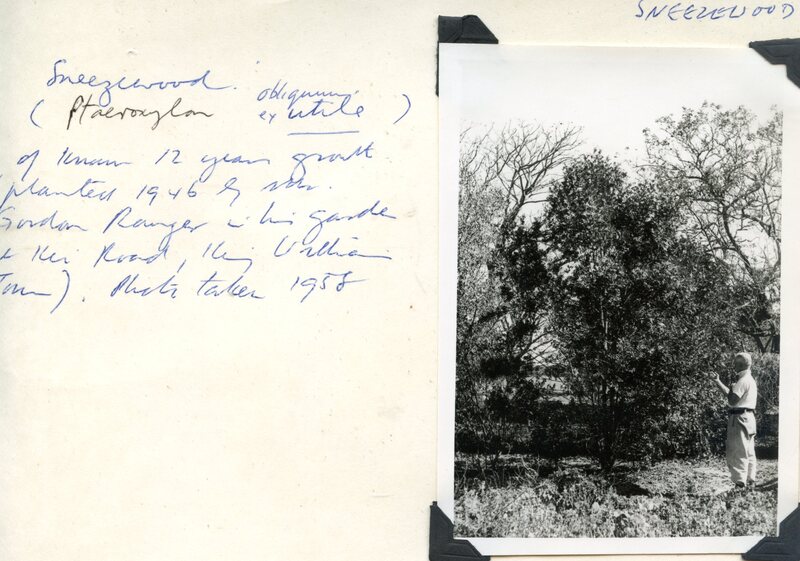 SNEEZEWOOD
Sneezewood.
obliquum
( Ptaeroxylon ex utile )
of known 12 years growth
planted 1946 by Mr.
Gordon Ranger in his garden
Kei Road, King William
Town). Photo taken 1958